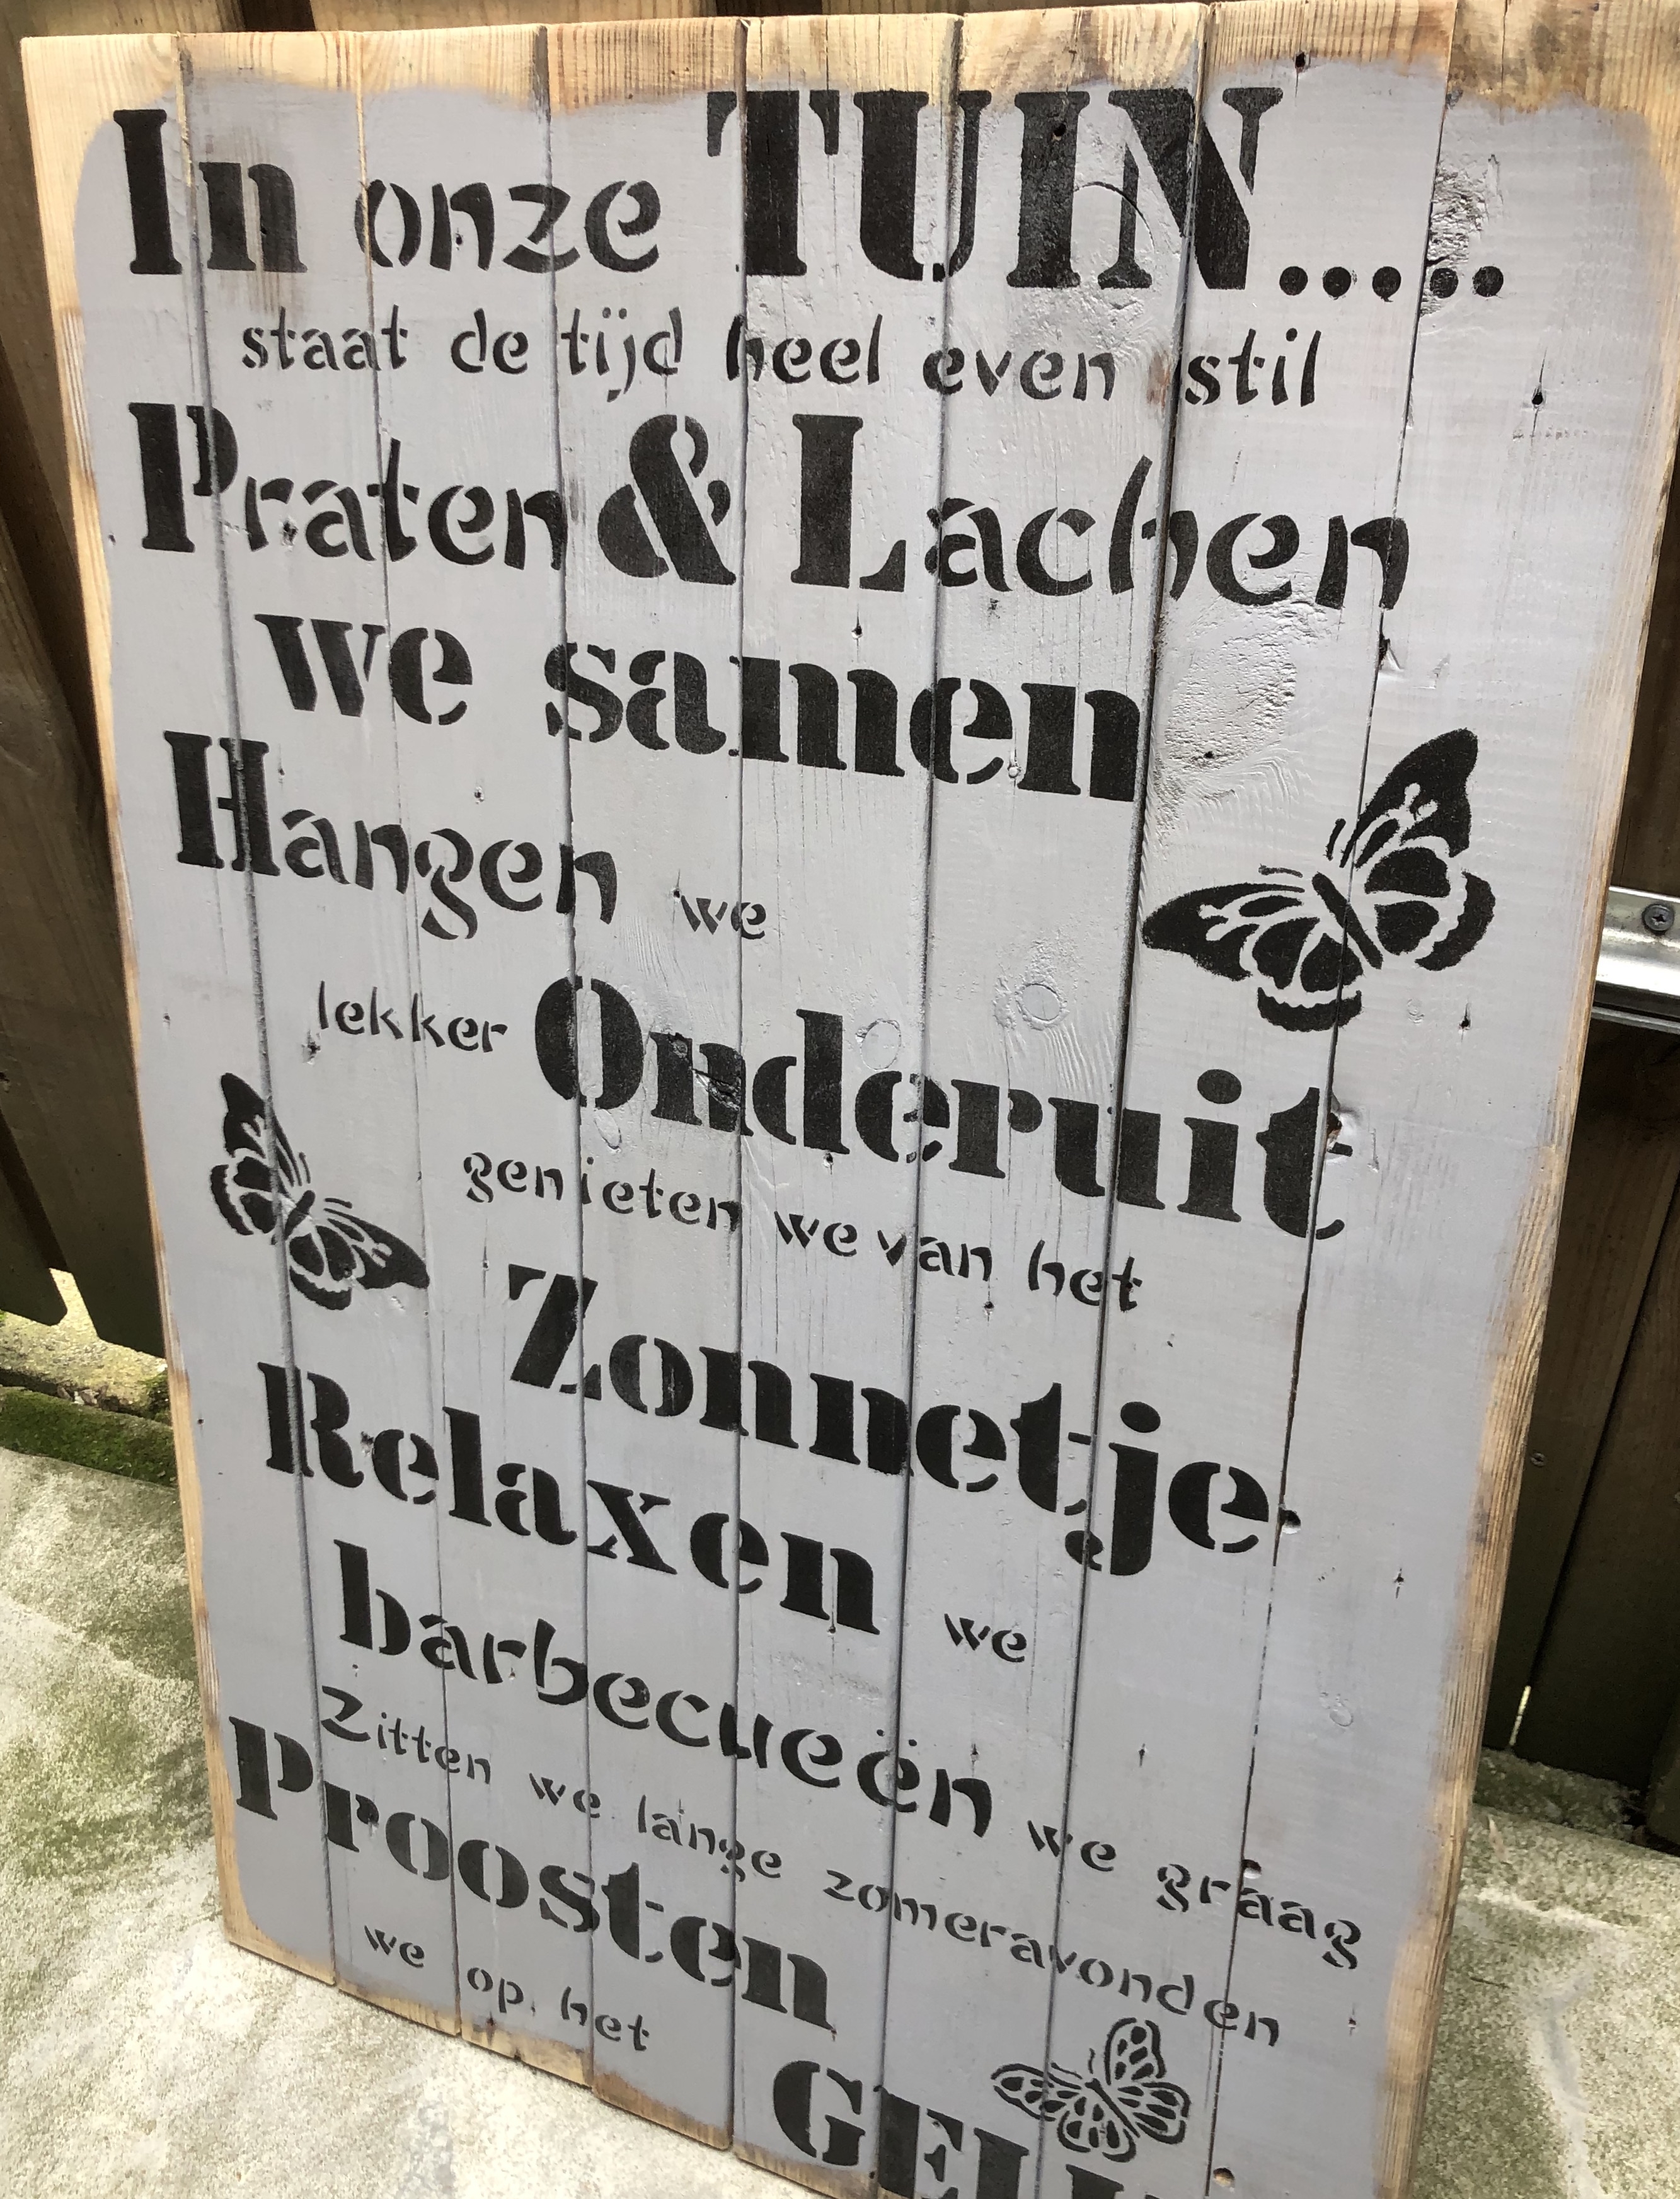 In onze TUIN......
staat de tijd heel even stil
Praten & Lachen
we samen
Hangen we
lekker Onderuit
genieten we van het
Zonnetje.
Relaxen we
barbecueën we graag
Zitten we lange zomeravonden
Proosten
we op het